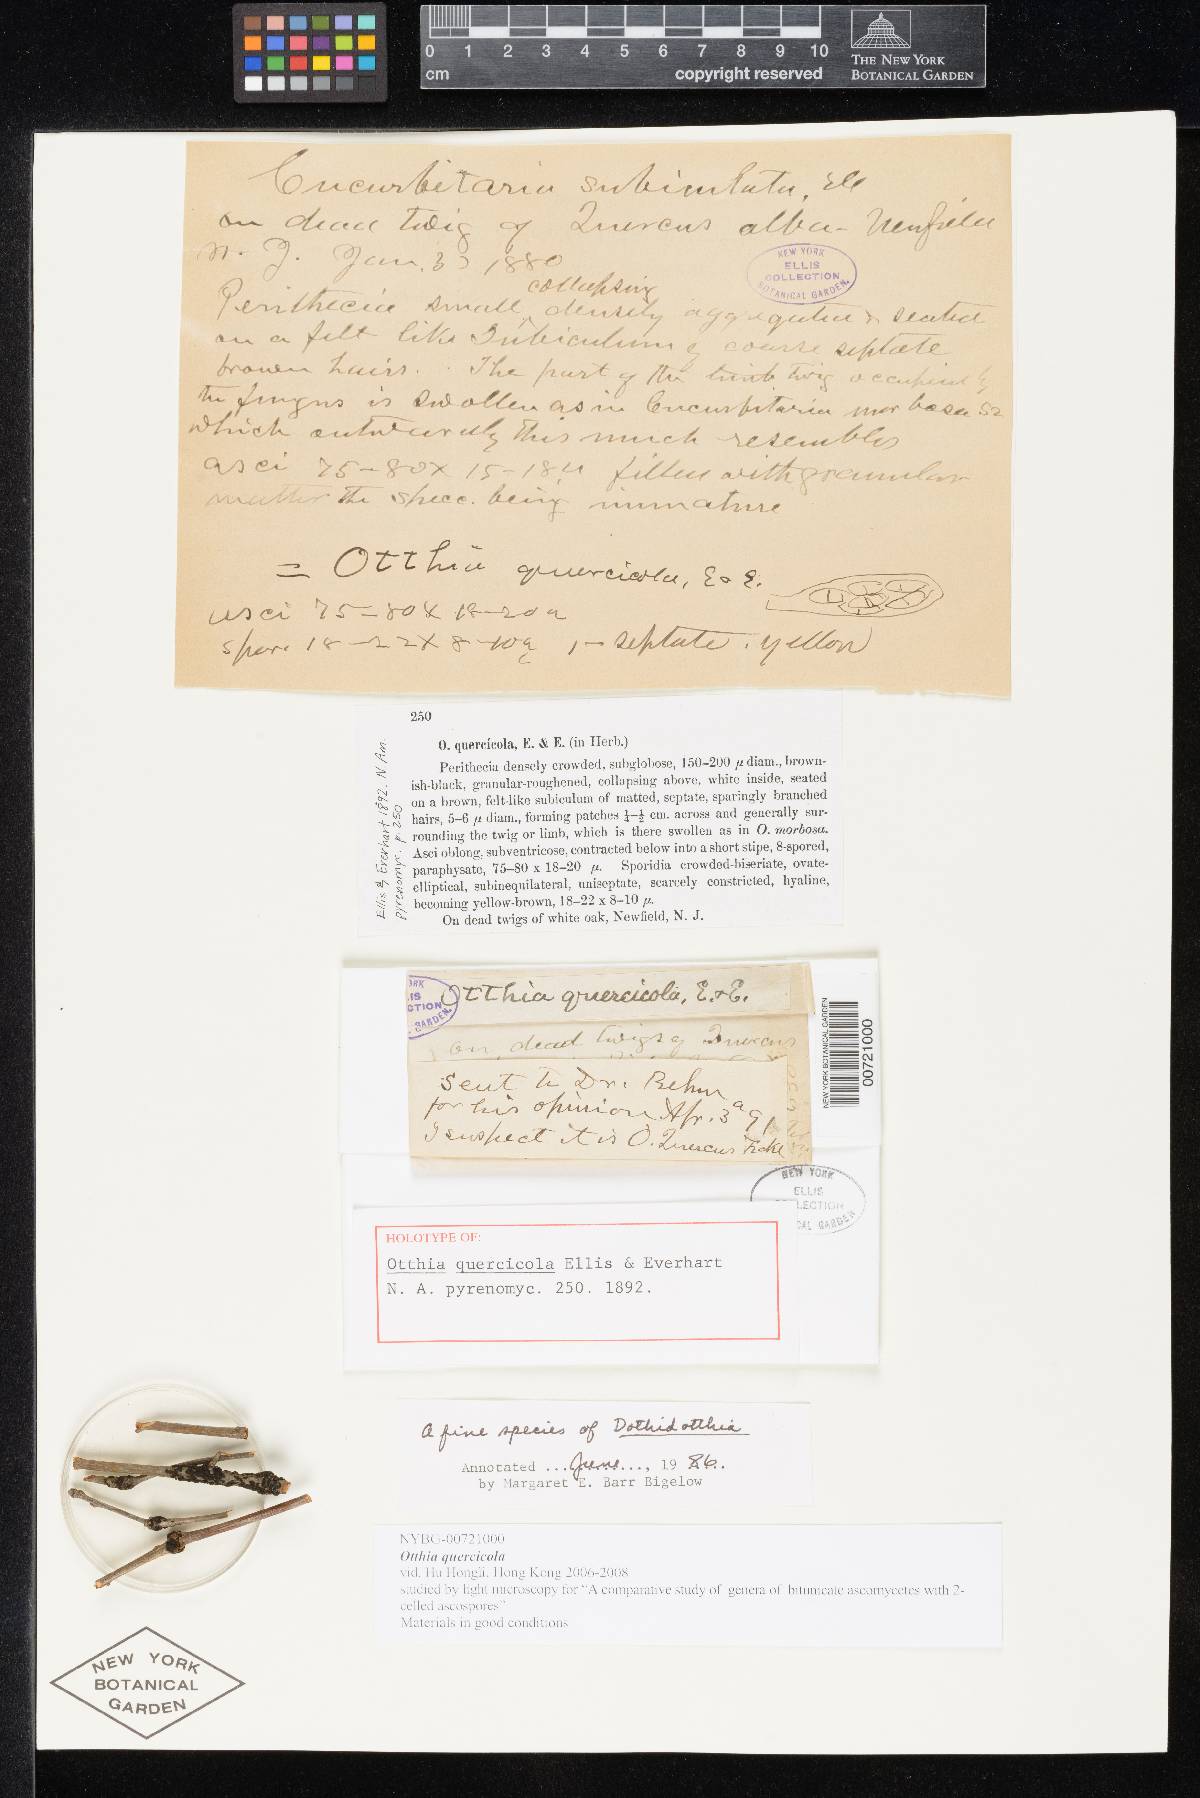 0 1 2 3 4 5 6 7 8 9 10
cm
copyright reserved
THE NEW YORK
BOTANICAL GARDEN
Cucurbitaria subiculata, Ell
on dead twig of Quercus alba - Newfield
N. J. Jan. 1880
NEW YORK
ELLIS
COLLECTION
BOTANICAL GARDEN.
collapsing
Perithecia small, densely aggregated & seated
on a felt like Subiculum of coarse septate
brown hairs. The part of the limb twig occupied by
the fungus is swollen as in Cucurbitaria morbosa Sz
which outwardly this much resembles
asci 75-80 x 15-18 µ filled with granular
matter the spec. being immature
= Otthia quercicola, E & E.
asci 75-80 x 18-20 µ
spor. 18-22 x 8-10 µ 1-septate. yellow
250
O. quercícola, E. & E. (in Herb.)
Perithecia densely crowded, subglobose, 150–200 µ diam., brown-
ish-black, granular-roughened, collapsing above, white inside, seated
on a brown, felt-like subiculum of matted, septate, sparingly branched
hairs, 5–6 µ diam., forming patches ¼–½ cm. across and generally sur-
rounding the twig or limb, which is there swollen as in O. morbosa.
Asci oblong, subventricose, contracted below into a short stipe, 8-spored,
paraphysate, 75–80 x 18–20 µ. Sporidia crowded-biseriate, ovate-
elliptical, subinequilateral, uniseptate, scarcely constricted, hyaline,
becoming yellow-brown, 18–22 x 8–10 µ.
On dead twigs of white oak, Newfield, N. J.
Ellis & Everhart 1892. N Am.
pyrenomyc. p. 250
Otthia quercicola, E. & E.
RK
IS
CTION
GARDEN.
On dead twigs of Quercus
Sent to Dr. Rehm
for his opinion Apr. 3d 91
I suspect it is O. Quercus Fckl
NEW YORK BOTANICAL GARDEN
00721000
NEW YORK
ELLIS
LLECTION
CAL GARDEN
HOLOTYPE OF:
Otthia quercicola Ellis & Everhart
N. A. pyrenomyc. 250. 1892.
A fine species of Dothidotthia
Annotated ...June..., 1986.
by Margaret E. Barr Bigelow
NYBG-00721000
Otthia quercicola
vid. Hu Hongli, Hong Kong 2006-2008
studied by light microscopy for "A comparative study of genera of bitunicate ascomycetes with 2-
celled ascospores"
Materials in good conditions
NEW YORK
BOTANICAL
GARDEN